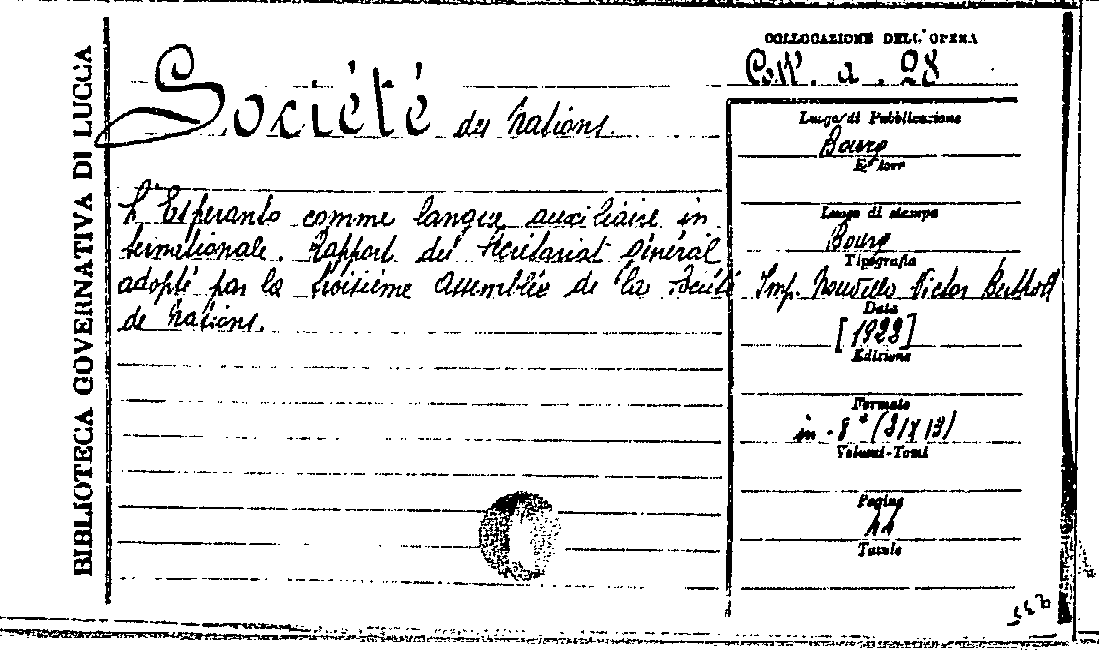 BIBLIOTECA GOVERNATIVA DI LUCCA
Société des Nations.
L'Esperanto comme langue auxiliaire in
ternationale. Rapport du Secrétariat Général
adopté par la troisième Assemblée de la Société
de Nations.
COLLOCAZIONE DELL'OPERA
Coll. a. 28
Luogo di Pubblicazione
Bourg
Editore
Luogo di stampa
Bourg
Tipografia
Imp. Nouvelle Victor Berthod
Data
[1922]
Edizione
Formato
in-8° (21X13)
Volumi-Tomi
Pagine
44
Tavole